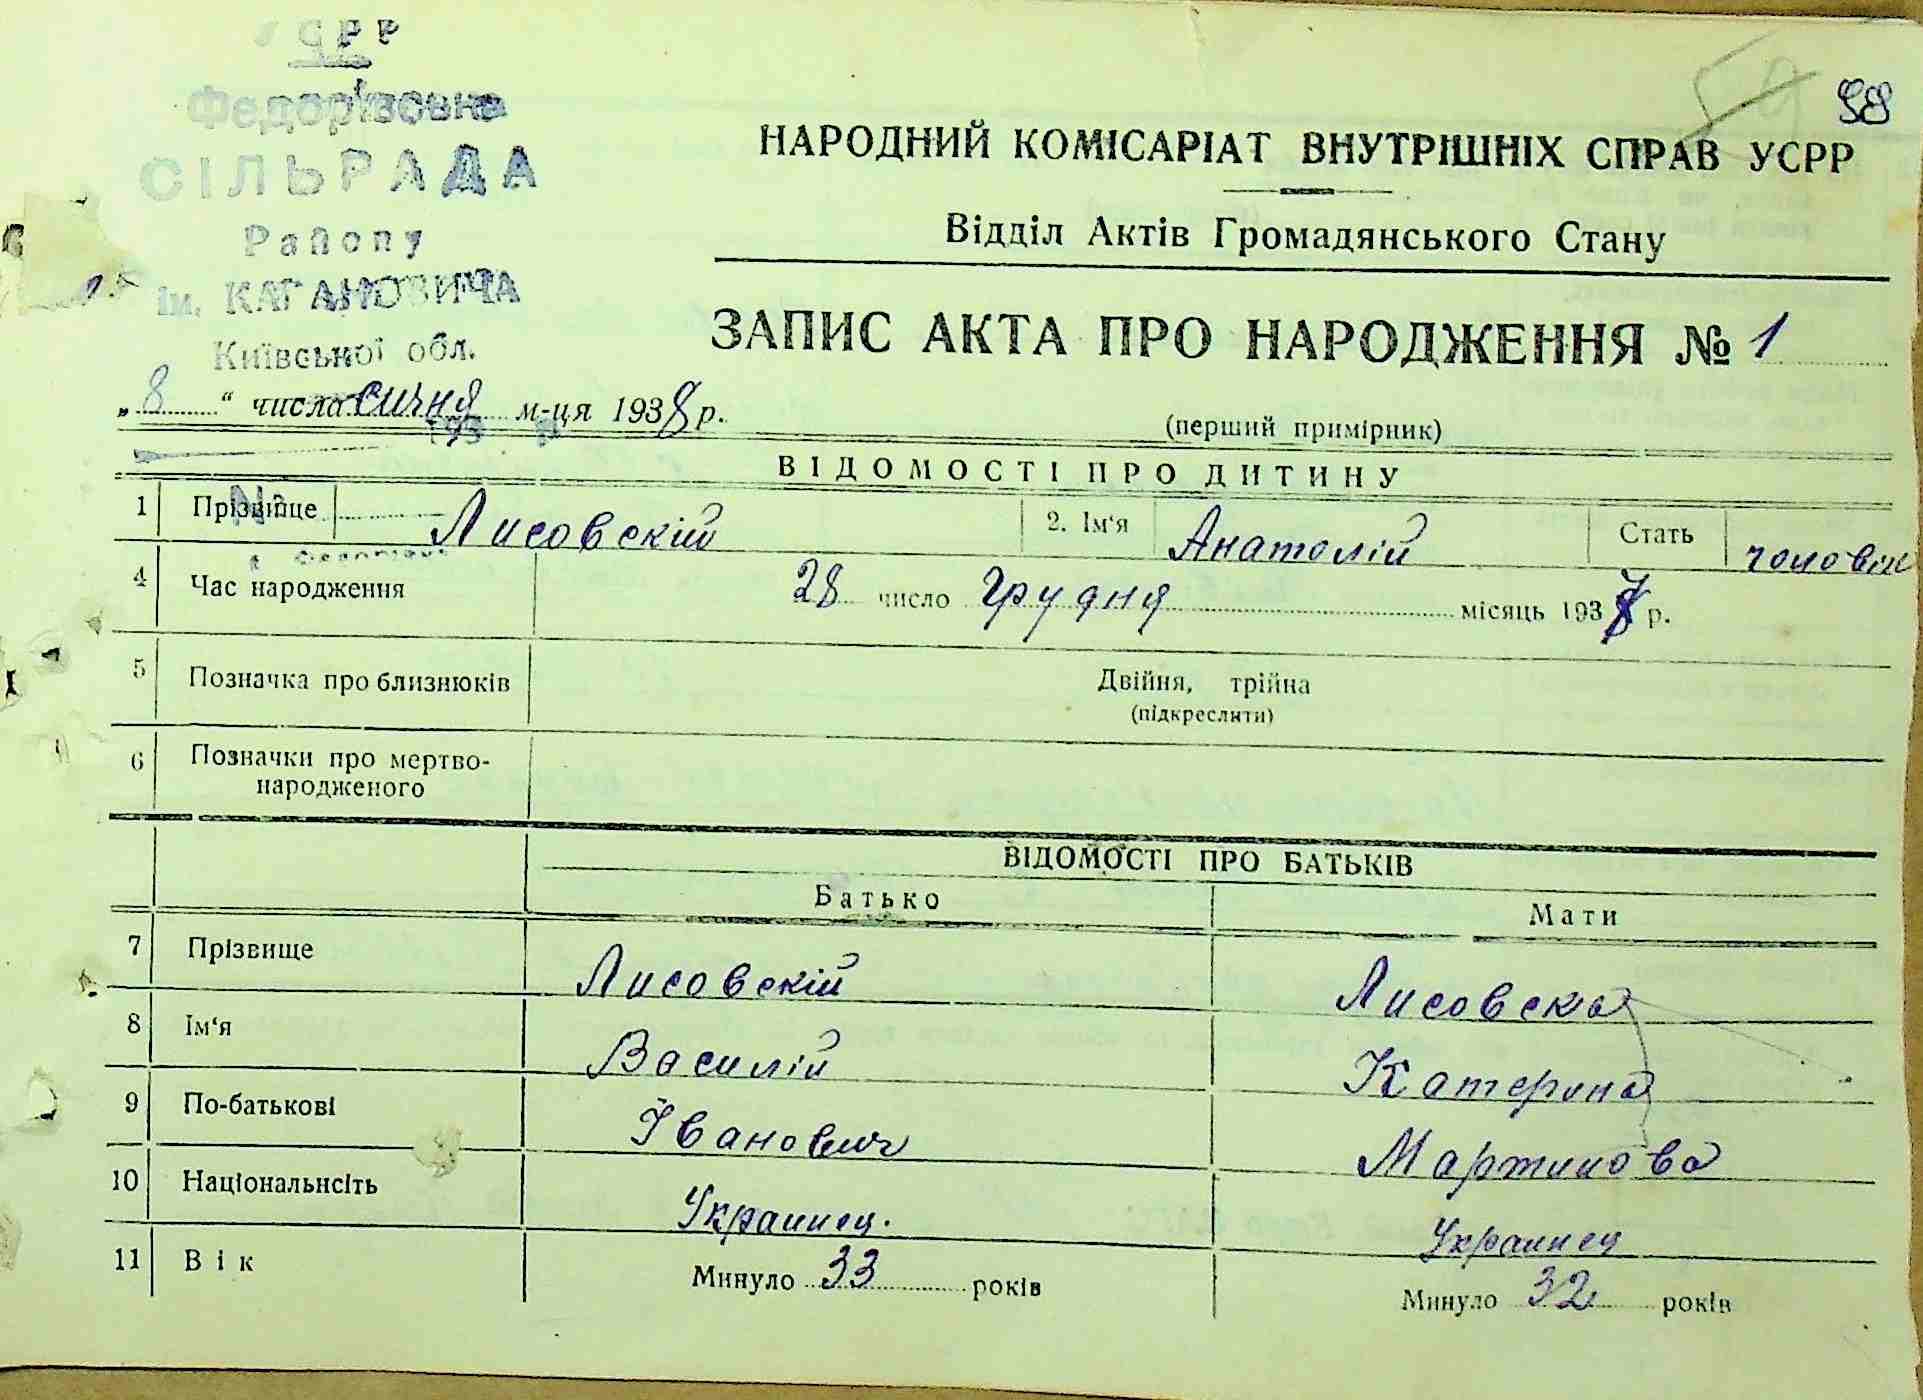 УСРР
Федорівська
СІЛЬРАДА
Району
ім. КАГАНОВИЧА
Київської обл.
58
НАРОДНИЙ КОМІСАРІАТ ВНУТРІШНІХ СПРАВ УСРР
Відділ Актів Громадянського Стану
ЗАПИС АКТА ПРО НАРОДЖЕННЯ № 1
„8“ числа сичня м-ця 1938 р.
(перший примірник)
ВІДОМОСТІ ПРО ДИТИНУ
1 Прізвище Лисовскій 2. Ім‘я Анатолій Стать чоловік
4 Час народження 28 число Грудня місяць 1937 р.
5 Позначка про близнюків Двійня, трійна
(підкреслити)
6 Позначки про мертво-
народженого
ВІДОМОСТІ ПРО БАТЬКІВ
Батько Мати
7 Прізвище Лисовскій Лисовска
8 Ім‘я Василій Катерина
9 По-батькові Іванович Мартинова
10 Національнсіть Украинец. Украинец
11 Вік Минуло 33 років Минуло 32 років